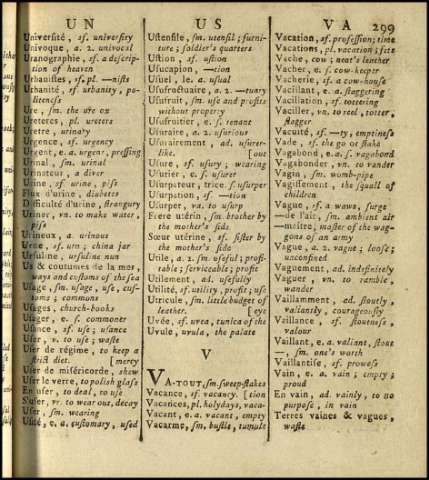 UN
US
VA
299
Université, sf. university
Univoque, a. 2. univocal
Uranographie, sf. a descrip-
tion of heaven
Urbanistes, sf. pl. —nists
Urbanité, sf. urbanity, po-
liteness
Ure, sm. the ure ox
Ureteres, pl. ureters
Uretre, urinary
Urgence, sf. urgency
Urgent, e. a. urgent, pressing
Urinal, urinal
Urinateur, a diver
Urine, sf. urine, piss
Flux d'urine, diabetes
Difficulté d'urine, strangury
Uriner, vn. to make water,
piss
Urineux, a. urinous
Urne, sf. urn; china jar
Ursuline, ursuline nun
Us & coutumes de la mer,
ways and customs of the sea
Usage, sm. usage, use, cus-
toms; commons
Usages, church-books
Usager, e. s. commoner
Usance, sf. use; usance
User, v. to use; waste
User de régime, to keep a
strict diet. [mercy
User de miséricorde, shew
User le verre, to polish glass
En user, to deal, to use
S'user, vr. to wear out, decay
User, sm. wearing
Usité, e. a. customary, used
Ustensile, sm. utensil; furni-
ture; soldier's quarters
Ustion, sf. ustion
Usucapion, —tion
Usuel, le. a. usual
Usufructuaire, a. 2. —tuary
Usufruit, sm. use and profits
without property
Usufruitier, e. s. tenant
Usuraire, a. 2. usurious
Usurairement, ad. usurer-
like. [out
Usure, sf. usury; wearing
Usurier, e. s. usurer
Usurpateur, trice. s. usurper
Usurpation, sf. —tion
Usurper, va. to usurp
Frere utérin, sm. brother by
the mother's side
Sœur utérine, sf. sister by
the mother's side
Utile, a. 2. sm. useful; profi-
table; serviceable; profit
Utilement, ad. usefully
Utilité, sf. utility, profit; use
Utricule, sm. little budget of
leather. [eye
Uvée, sf. uvea, tunica of the
Uvule, uvula, the palate
V
VA-TOUT, sm. sweep-stakes
Vacance, sf. vacancy. [tion
Vacances, pl. holydays, vaca-
Vacant, e. a. vacant, empty
Vacarme, sm. bustle, tumult
Vacation, sf. profession; time
Vacations, pl. vacation; fees
Vache, cow; neat's leather
Vacher, e. s. cow-keeper
Vacherie, sf. a cow-house
Vacillant, e. a. staggering
Vacillation, sf. tottering
Vaciller, vn. to reel, totter,
stagger
Vacuité, sf. —ty, emptiness
Vade, sf. the go or stake
Vagabond, e. a. s. vagabond
Vagabonder, vn. to vander
Vagin, sm. womb-pipe
Vagissement, the squall of
children
Vague, sf. a wave, surge
—de l'air, sm. ambient air
—maître, master of the wag-
gons of an army
Vague, a. 2. vague; loose;
unconfined
Vaguement, ad. indefinitely
Vaguer, vn. to ramble,
wander
Vaillamment, ad. stoutly,
valiantly, courageously
Vaillance, sf. stoutness,
valour
Vaillant, e. a. valiant, stout
—, sm. one's worth
Vaillantise, sf. prowess
Vain, e. a. vain; empty;
proud
En vain, ad. vainly, to no
purpose, in vain
Terres vaines & vagues,
waste